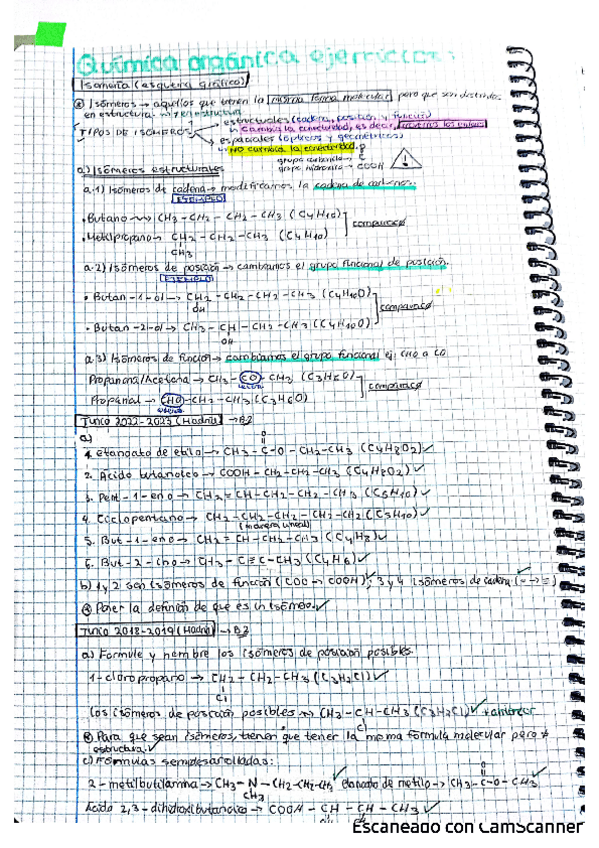 Química orgánica ejercicios:
Isomería (esquema gráfico)
* Isómeros → aquellos que tienen la misma fórmula molecular pero que son distintos
en estructura.
TIPOS DE ISÓMEROS
estructurales (cadena, posición y función)
↳ Cambia la conectividad, es decir,
espaciales (ópticos y geométricos)
↳ NO cambia la conectividad.
grupo carbonilo → C
O
grupo hidroxilo → COOH
a) Isómeros estructurales
a.1) Isómeros de cadena → modificamos la cadena de carbonos.
EJEMPLO
• Butano → CH3 - CH2 - CH2 - CH3 (C4H10)
comparación
• Metilpropano → CH2 - CH2 - CH3 (C4H10)
CH3
a.2) Isómeros de posición → cambiamos el grupo funcional de posición.
EJEMPLO
• Butan-1-ol → CH2 - CH2 - CH2 - CH3 (C4H10O)
OH
comparación
• Butan-2-ol → CH3 - CH - CH2 - CH3 (C4H10O)
OH
a.3) Isómeros de función → cambiamos el grupo funcional ej: CHO a CO
Propanona/Acetona → CH3 - CO - CH3 (C3H6O)
comparación
Propanal → CHO - CH2 - CH3 (C3H6O)
Junio 2022-2023 (Madrid) → B2
a)
O
1. etanoato de etilo → CH3 - C - O - CH2 - CH3 (C4H8O2) ✓
2. Ácido butanoico → COOH - CH2 - CH2 - CH3 (C4H8O2) ✓
3. Pent-1-eno → CH2 = CH - CH2 - CH2 - CH3 (C5H10) ✓
4. Ciclopentano → CH2 - CH2 - CH2 - CH2 - CH2 (C5H10) ✓
(manera lineal)
5. But-1-eno → CH2 = CH - CH2 - CH3 (C4H8) ✓
6. But-2-ino → CH3 - C ≡ C - CH3 (C4H6) ✓
b) 1 y 2 son isómeros de función (COO → COOH) ✓, 3 y 4 isómeros de cadena (- → =) ✓
* Poner la definición de que es un isómero. ✓
Junio 2018-2019 (Madrid) → B2
a) Formule y nombre los isómeros de posición posibles.
1-cloropropano → CH2 - CH2 - CH3 (C3H7Cl) ✓
Cl
Los isómeros de posición posibles → CH3 - CH - CH3 (C3H7Cl) ✓
Cl
* Para que sean isómeros, tienen que tener la misma fórmula molecular pero ≠
estructura. ✓
c) Fórmulas semidesarrolladas:
O
2-metilbutilamina → CH3 - N - CH2 - CH2 - CH3 ✓ etanoato de metilo → CH3 - C - O - CH3 ✓
CH3
Ácido 2,3-dihidroxibutanoico → COOH - CH - CH - CH3 ✓
Escaneado con CamScanner